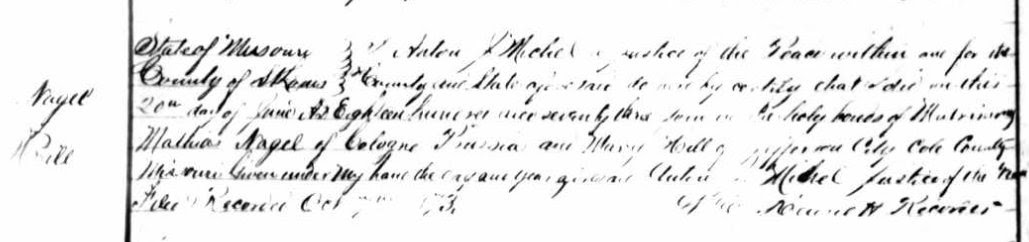 State of Missouri I Anton J Michel a Justice of the Peace within and for the
County of St Louis County and State aforesaid do hereby certify that I did on this
Nagel
20th day of June AD Eighteen hundred and seventy three join in the holy bonds of Matrimony
Hill
Mathias Nagel of Cologne Prussia and Mary Hill of Jefferson City Cole County
Missouri Given under my hand the day and year aforesaid Anton J Michel Justice of the Peace
Filed & Recorded Oct 73 Recorder